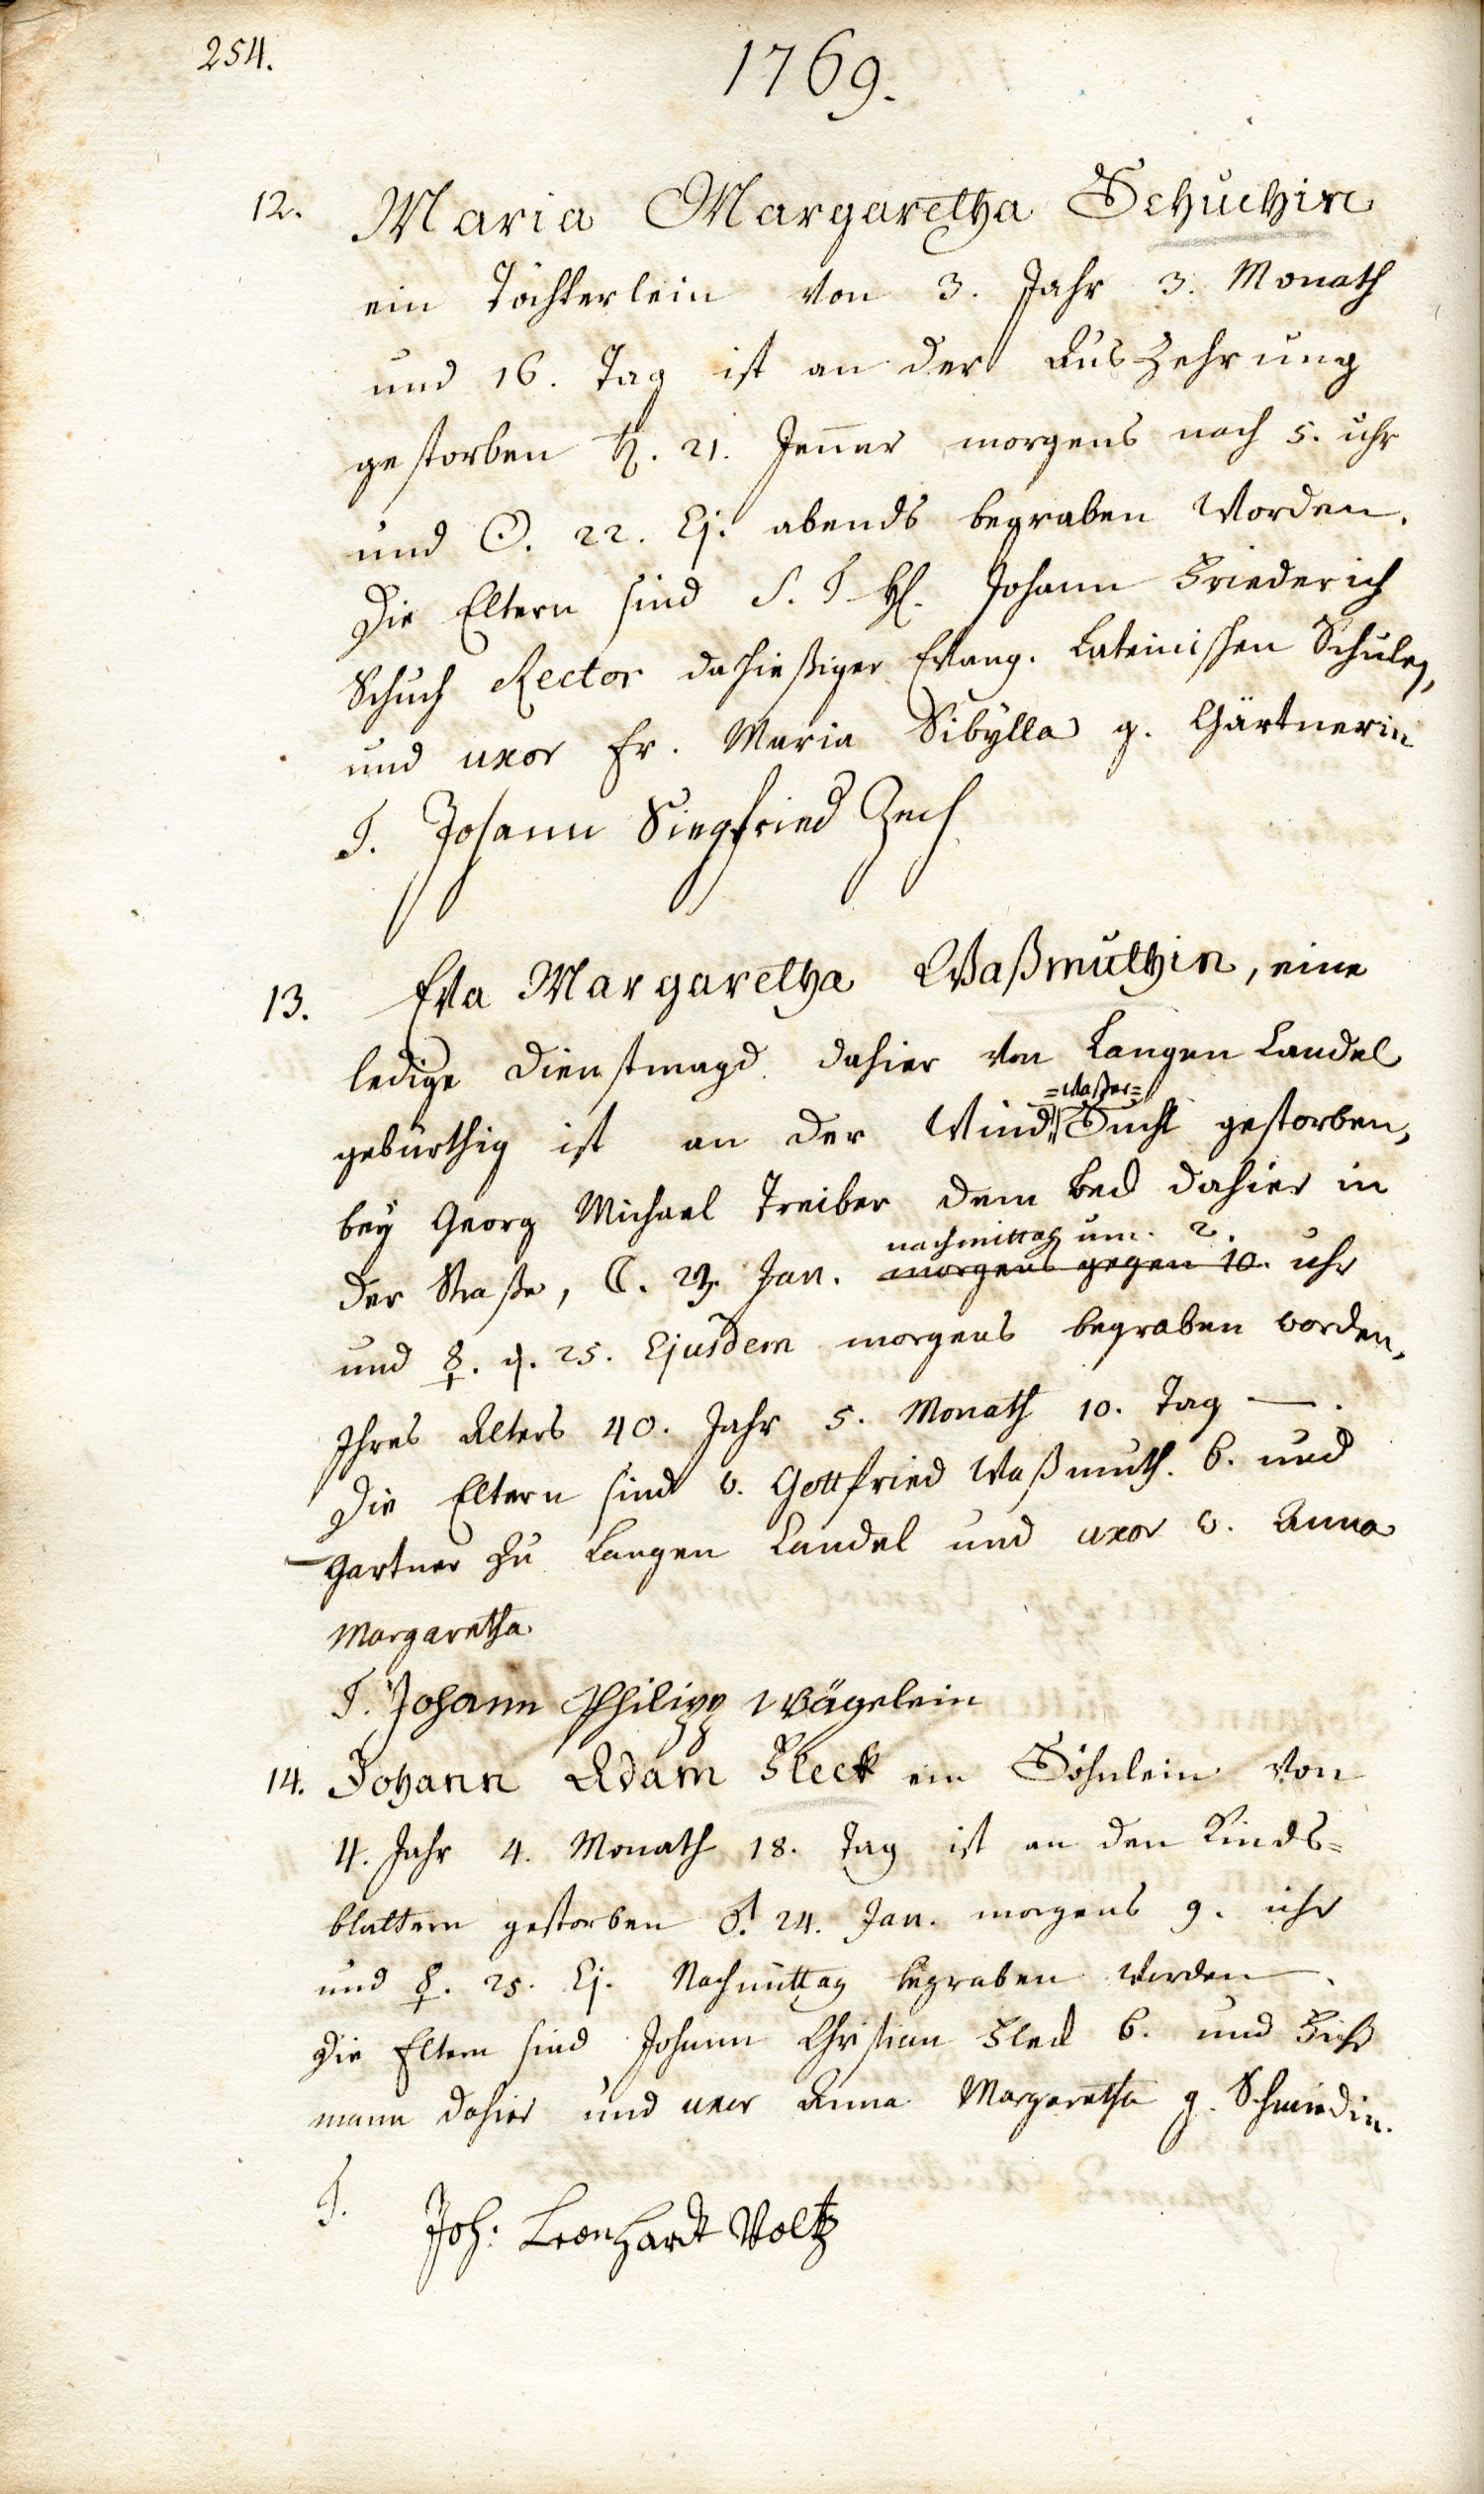 254.
1769.
12. Maria Margaretha Schuchin
ein Töchterlein von 3. Jahr 3. Monath
und 16. Tag ist an der Auszehrung
gestorben ♄. 21. Jenner morgens nach 5. uhr
und ☉. 22. Ej. abends begraben worden.
Die Eltern sind S. T. H. Johann Friederich
Schuch Rector dahießiger Evang. Lateinischen Schule,
und uxor Fr. Maria Sibÿlla g. Gärtnerin
T. Johann Siegfried Zech
13. Eva Margaretha Waßmuthin, eine
ledige Dienstmagd dahier von Langen Candel
=Waßer=
gebürthig ist an der Wind Sucht gestorben,
beÿ Georg Michael Treiber dem Beck dahier in
nachmittag um. 2.
der Straße, ☾. 23. Jan. morgens gegen 10. uhr
und ☿. d. 25. Ejusdem morgens begraben worden,
Ihres Alters 40. Jahr 5. Monath 10. Tag —.
Die Eltern sind v. Gottfried Waßmuth. b. und
Gartner zu Langen Candel und uxor v. Anna
Margaretha
T. Johann Philipp Wägelein
14. Johann Adam Fleck ein Söhnlein von
4. Jahr 4. Monath 18. Tag ist an den Kinds=
blattern gestorben ♂. 24. Jan. morgens 9. uhr
und ☿. 25. Ej. Nachmittag begraben worden.
Die Eltern sind Johann Christian Fleck b. und
mann dahier und uxor Anna Margaretha g. Schmiedin.
T. Joh: Leonhardt Voltz